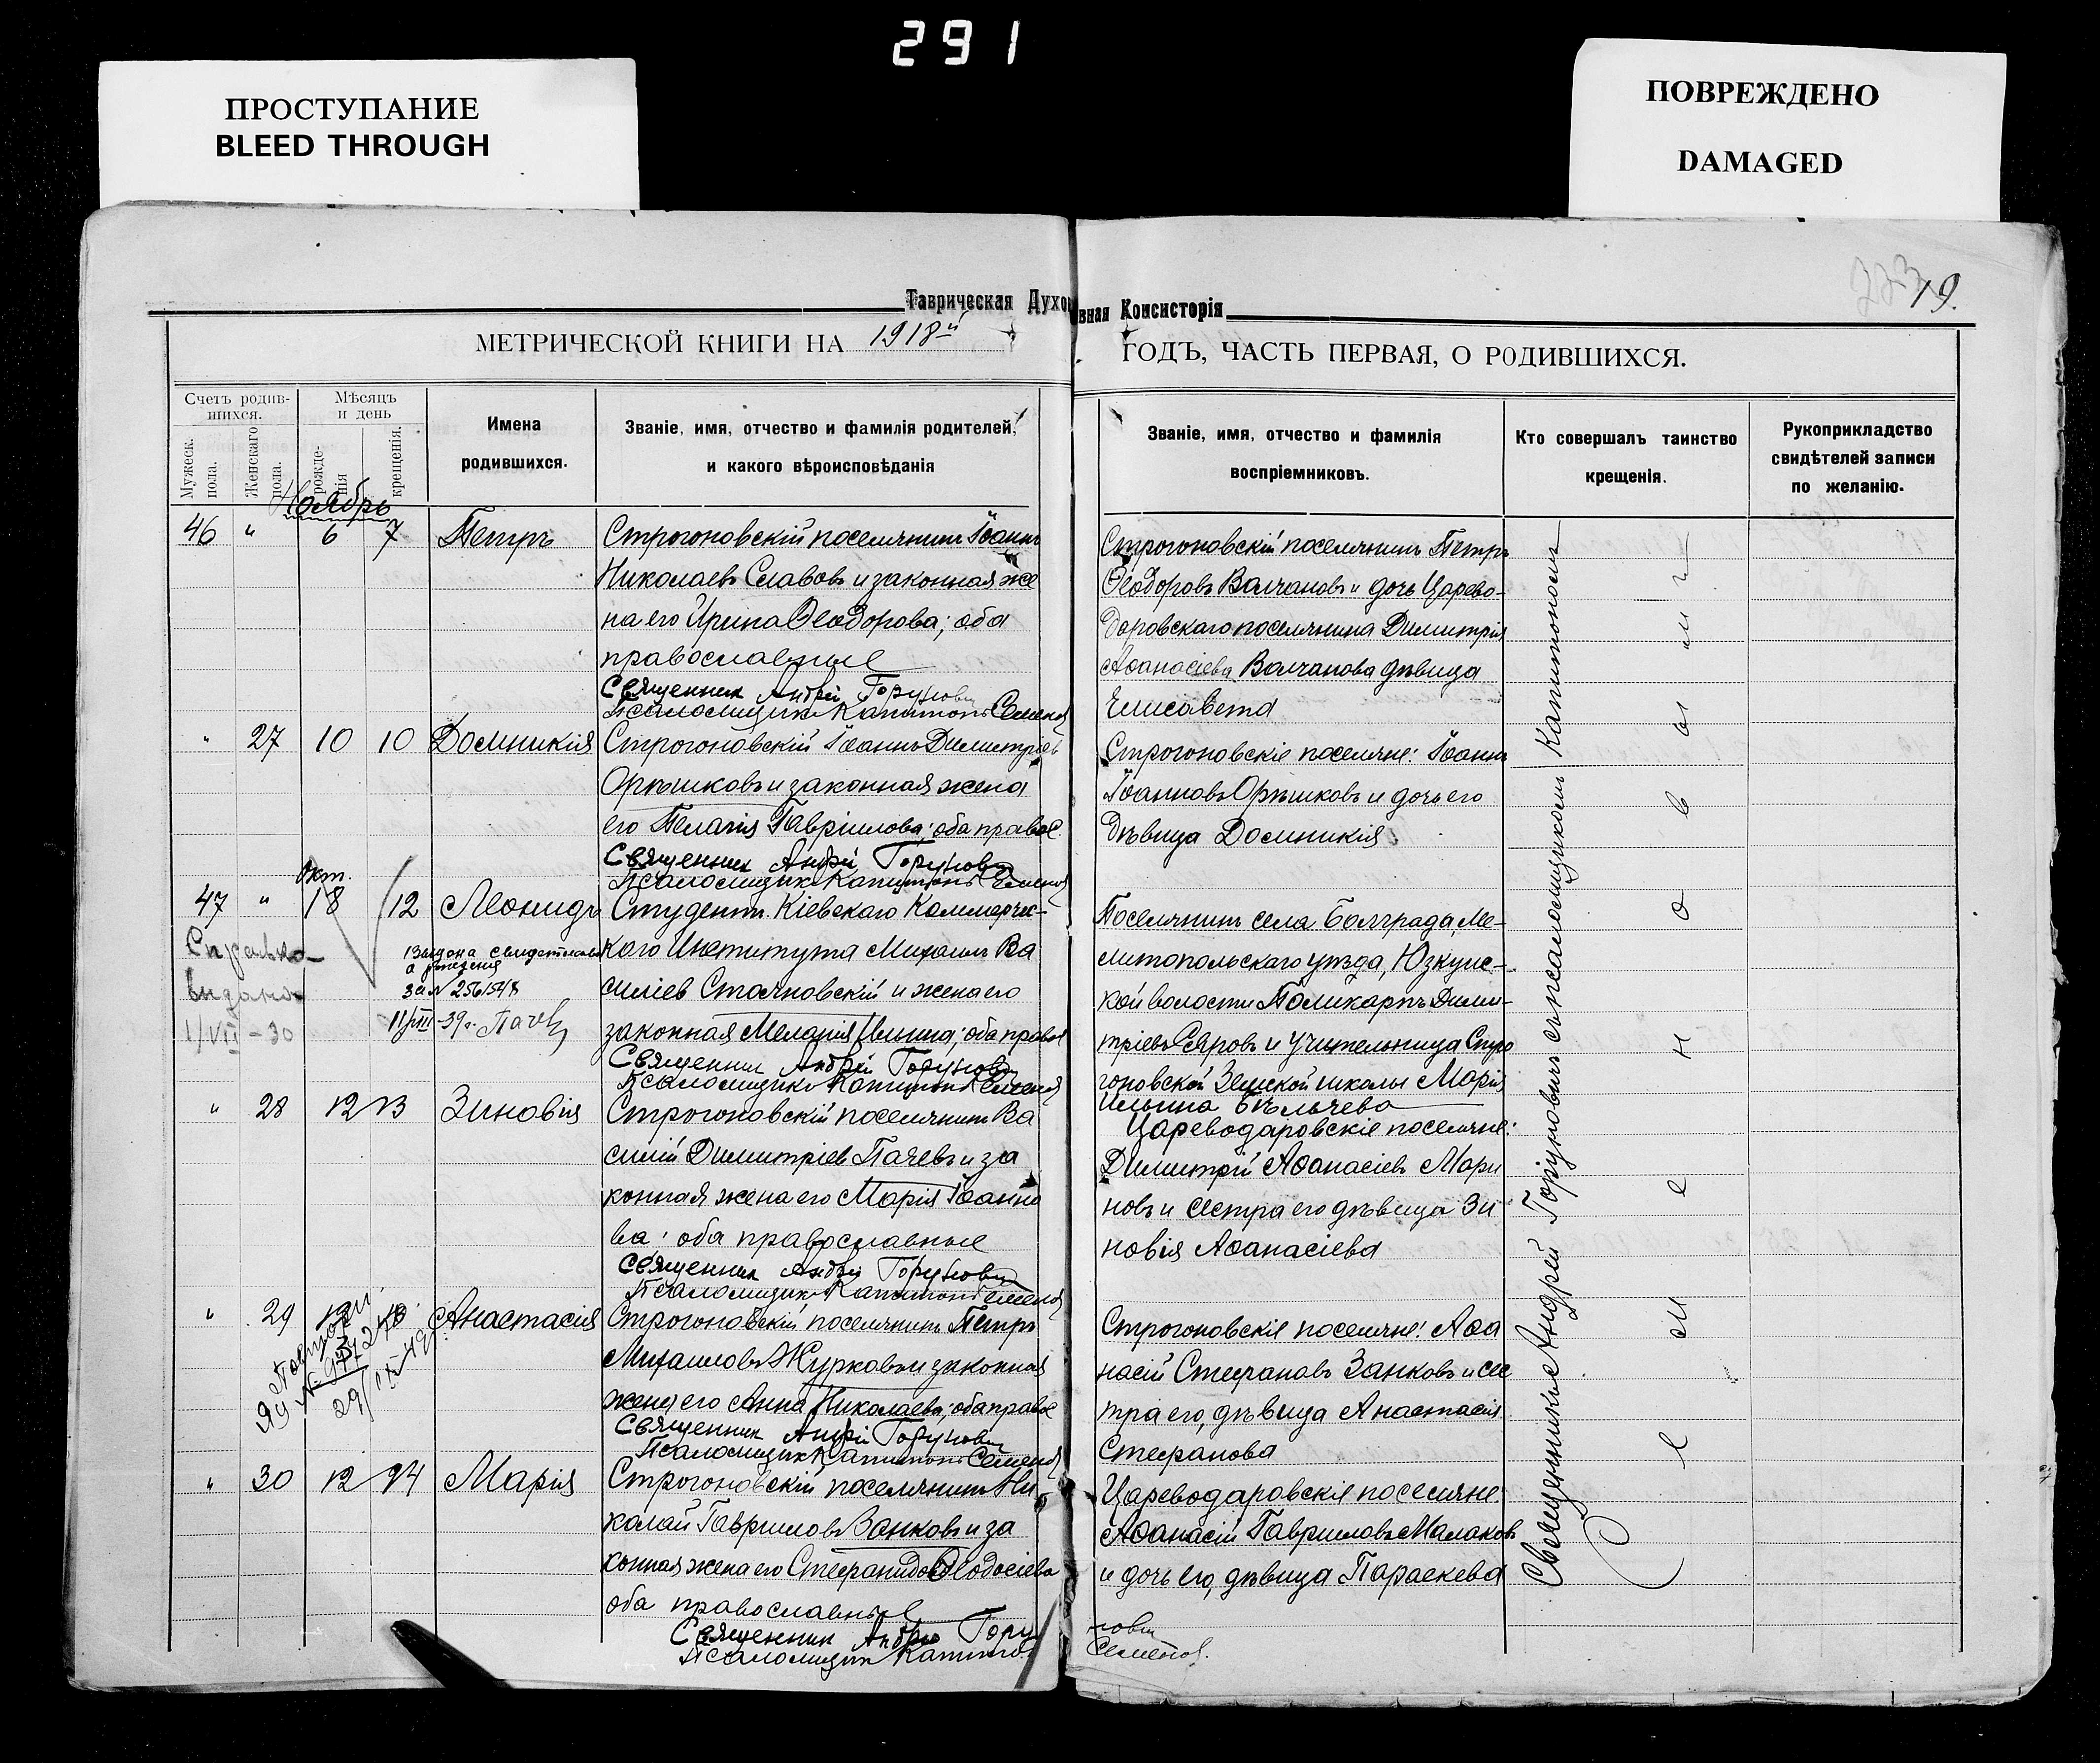 291
ПРОСТУПАНИЕ
BLEED THROUGH
ПОВРЕЖДЕНО
DAMAGED
19.
Таврическая Духовная Консисторія
МЕТРИЧЕСКОЙ КНИГИ НА 1918й ГОДЪ, ЧАСТЬ ПЕРВАЯ, О РОДИВШИХСЯ.
Счетъ родив-
шихся.
Мужеск.
пола.
Женскаго
пола.
Мѣсяцъ
и день
рожде-
нія
крещенія.
Имена
родившихся.
Званіе, имя, отчество и фамилія родителей,
и какого вѣроисповѣданія
Званіе, имя, отчество и фамилія
воспріемниковъ.
Кто совершалъ таинство
крещенія.
Рукоприкладство
свидѣтелей записи
по желанію.
Ноябрь
46 " 6 7 Петръ
Строгоновскій поселянинъ Іоаннъ
Николаевъ Славовъ и законная же
на его Ирина Ѳеодорова; оба
православные
Священник Андрей Горунович
Псаломщикъ Капитонъ Семенов
Строгоновскій поселянинъ Петръ
Ѳеодоровъ Валчановъ и дочь Царево-
даровскаго поселянина Димитрія
Аѳанасіева Валчанова дѣвица
Елисавета
" 27 10 10 Домникія
Строгоновскій Іоаннъ Димитріевъ
Орѣшковъ и законная жена
его Пелагія Гавріилова; оба правос.
Священник Андрей Горунович
Псаломщикъ Капитонъ Семенов
Строгоновскіе поселяне: Іоаннъ
Іоанновъ Орѣшковъ и дочь его
дѣвица Домникія
Окт.
47 " 18 12 Леонидъ
Справка
видана
1/VII - 30
Видана свидетельство
о рождении
за № 256154/8
11/VIII-39г.
Студентъ Кіевскаго Коммерчес-
каго Института Михаилъ Ва
силіев Стояновскій и жена его
законная Меланія Ильина; оба правосл
Священник Андрей Горунович
Псаломщикъ Капитон Семенов
Поселянинъ села Болграда, Ме-
литопольскаго уѣзда, Юзкуис-
кой волости Поликарпъ Дими-
тріевъ и учительница Стро
гоновской Земской школы Марія
Ильина Бѣльчева
" 28 12 13 Зиновія
Строгоновскій поселянинъ Ва
силій Димитріев Пачевъ и за
конная жена его Марія Іоанно
ва; оба православные
Священник Андрей Горунович
Псаломщикъ Капитонъ Семенов
Цареводаровскіе поселяне:
Димитрій Аѳанасіевъ Мари
новъ и сестра его дѣвица Зи
новія Аѳанасіева
" 29 Анастасія
Строгоновскій поселянинъ Петръ
Михаиловъ Журковъ и законная
жена его Анна Николаева; оба правос
Священник Андрей Горунович
Псаломщикъ Капитонъ Семенов
Строгоновскіе поселяне: Аѳа
насій Стефановъ Занковъ и сес
тра его, дѣвица Анастасія
Стефанова
" 30 12 14 Марія
Строгоновскій поселянинъ Ни
колай Гавриловъ Ванковъ и за
конная жена его Стефанида Ѳеодосіева
оба православные
Священник Андрей Горунович
Псаломщик Капитон Семенов.
Цареводаровскіе поселяне:
Аѳанасій Гавриловъ Малаковъ
и дочь его, дѣвица Параскева
Священникъ Андрей Горуновичъ съ псаломщикомъ Капитономъ
Семеновымъ